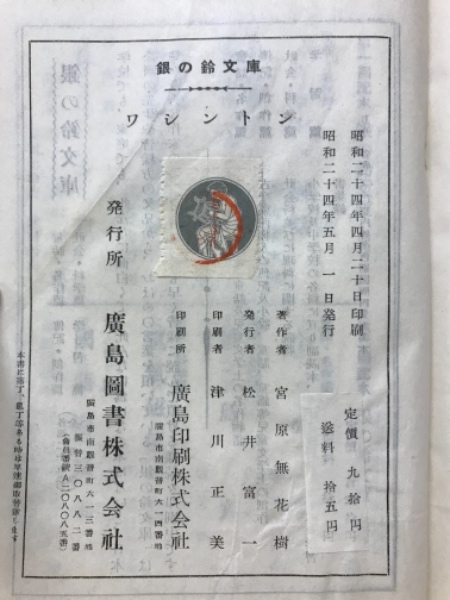 銀の鈴文庫
ワシントン
昭和二十四年四月二十日印刷
昭和二十四年五月一日発行
定價 九拾円
送料 拾五円
著作者 宮原無花樹
発行者 松井富一
印刷者 津川正美
印刷所 廣島印刷株式会社
廣島市南観音町六一四番地
発行所 廣島圖書株式会社
廣島市南観音町六一三番地
振替三〇八八二番
(会員番號A二〇八〇八五番)
本書に落丁、乱丁等ある時は早速御取替致します
銀の鈴文庫